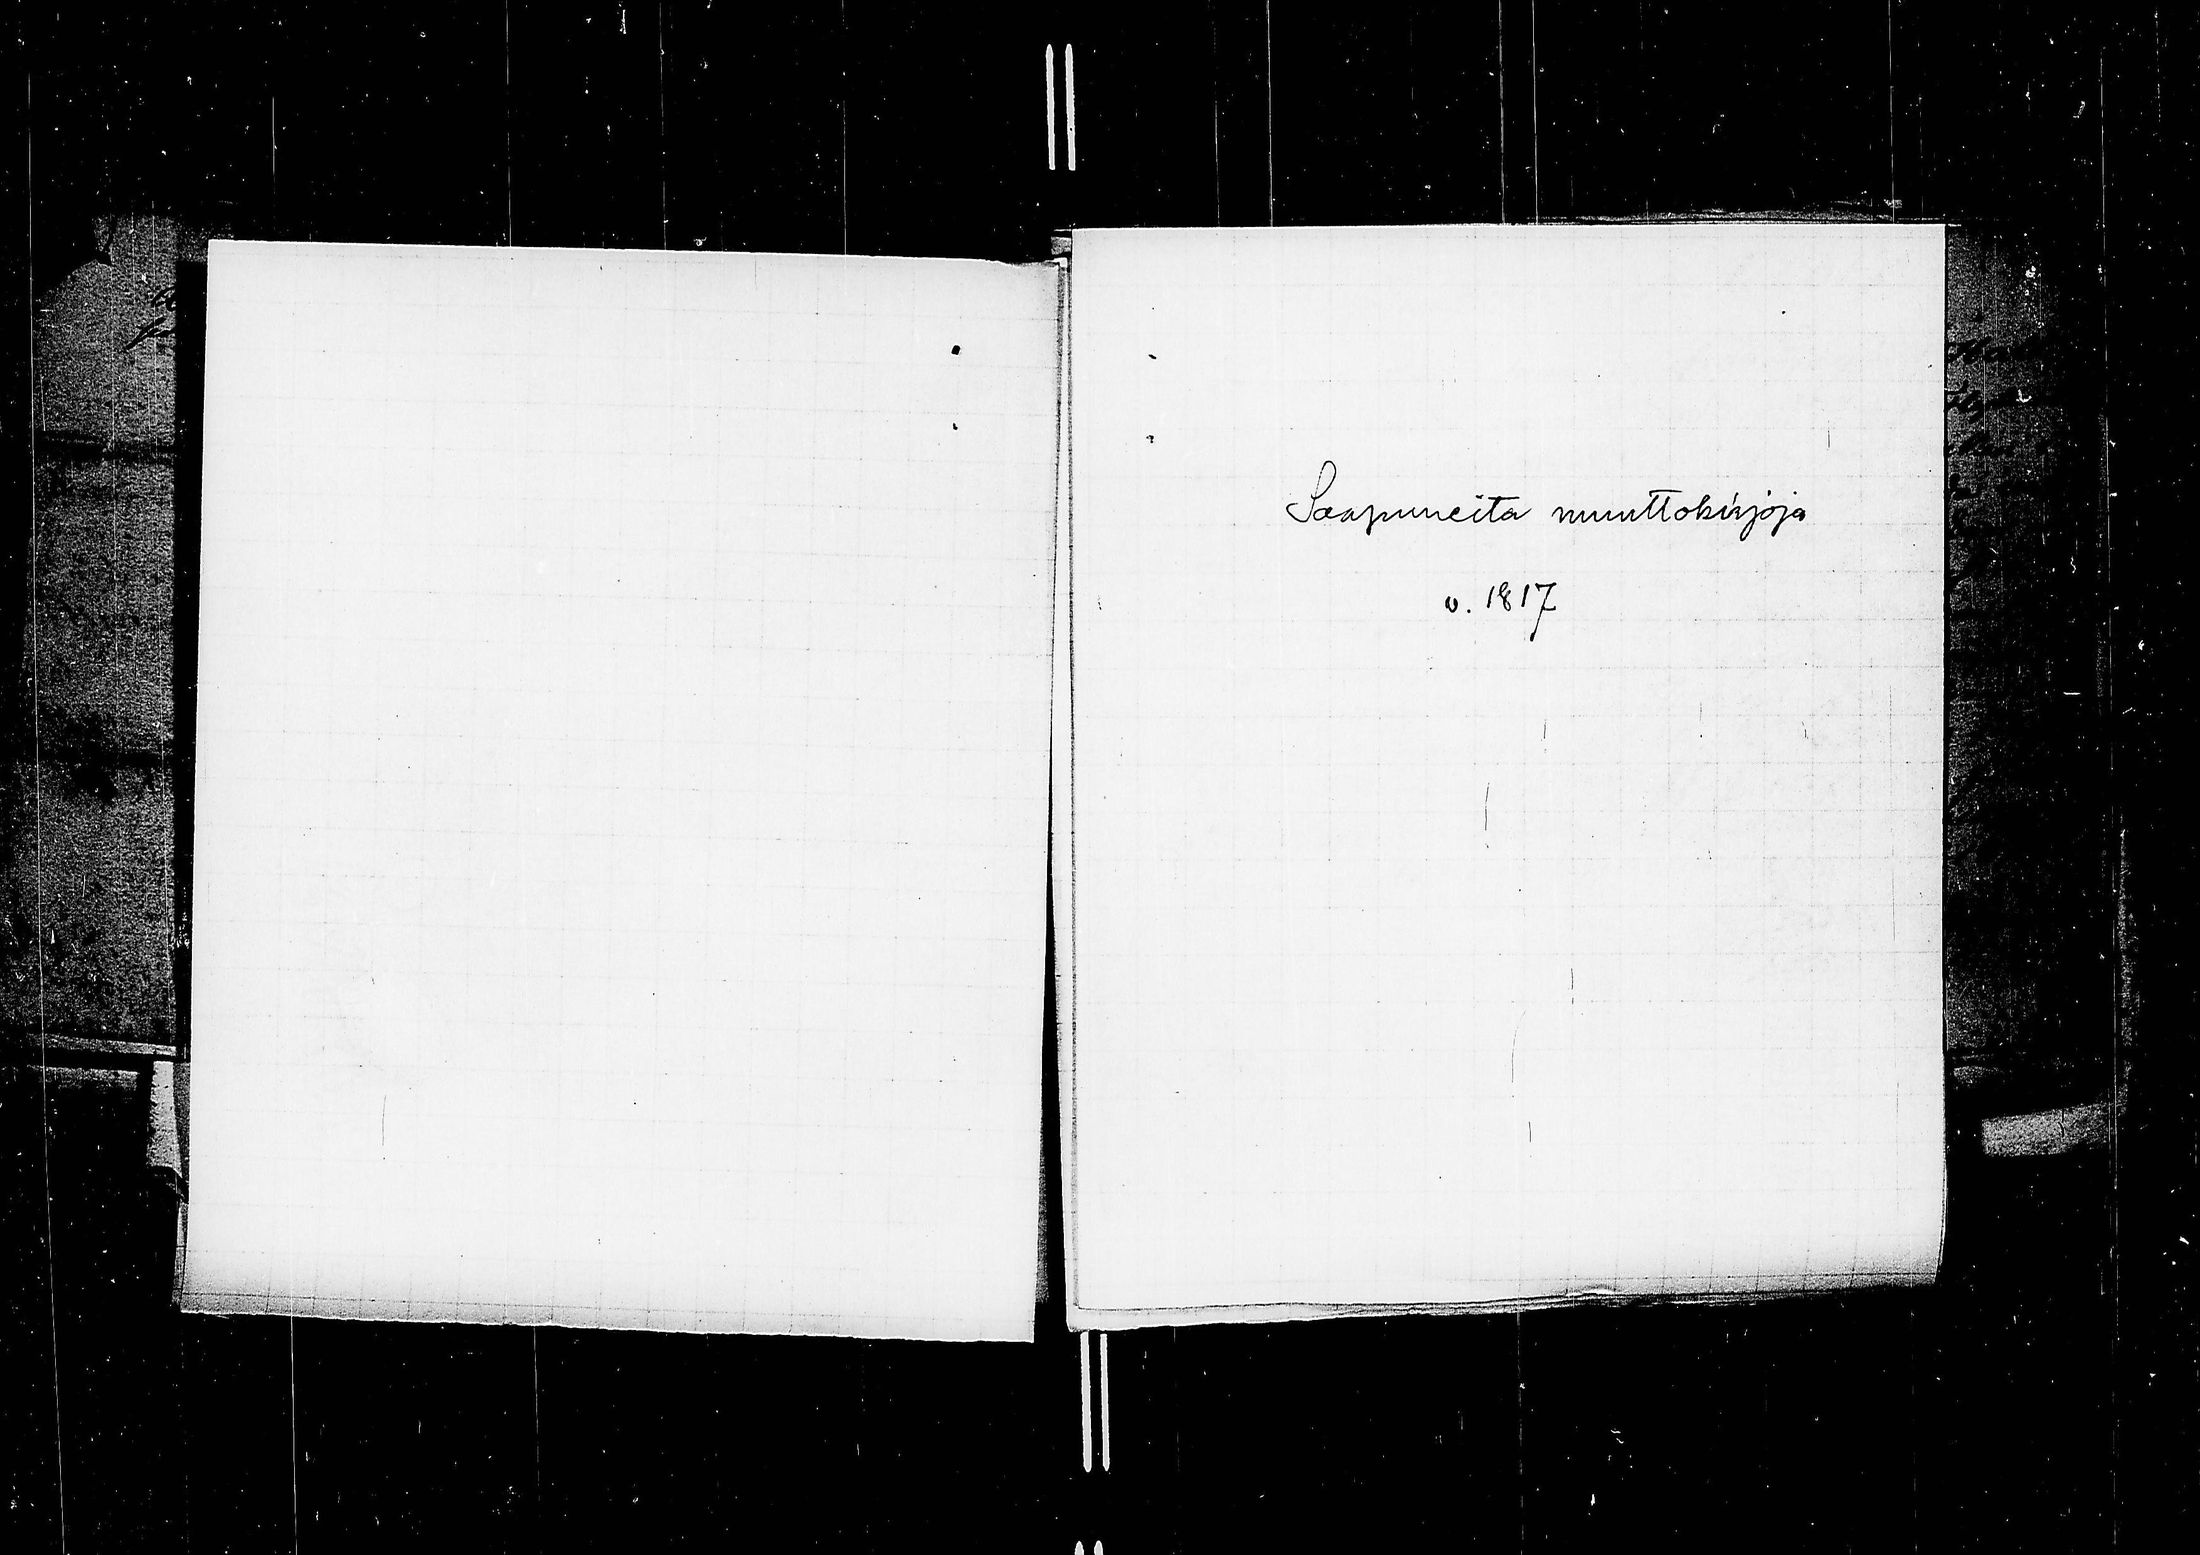 Saapuneita muuttokirjoja
v. 1817